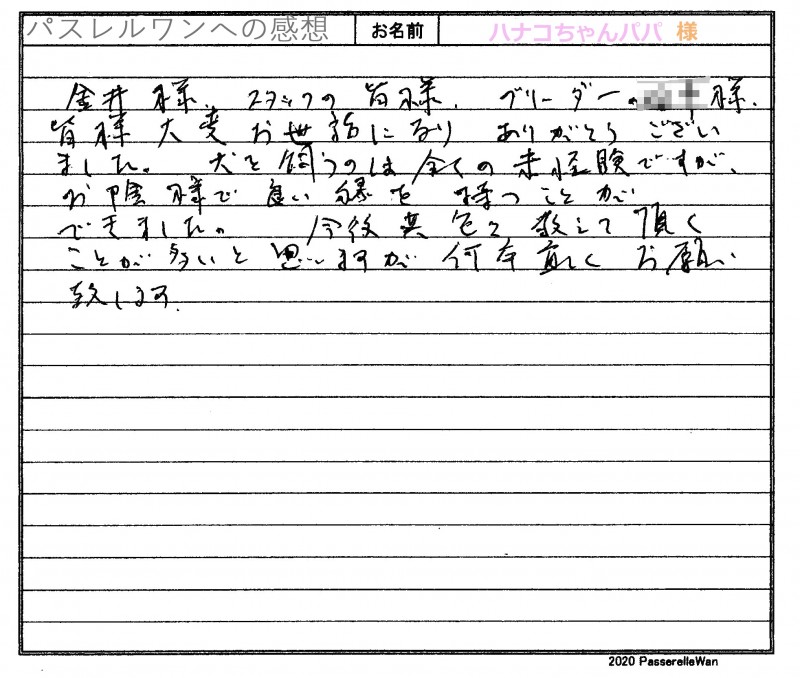 パスレルワンへの感想 お名前 ハナコちゃんパパ 様
金井様、スタッフの皆様、ブリーダーの 様、
皆様大変お世話になり ありがとうござい
ました。 犬を飼うのは全くの未経験ですが、
お陰様で良い縁を持つことが
できました。 今後共色々教えて頂く
ことが多いと思いますが何卒宜しくお願い
致します。
2020 PasserelleWan